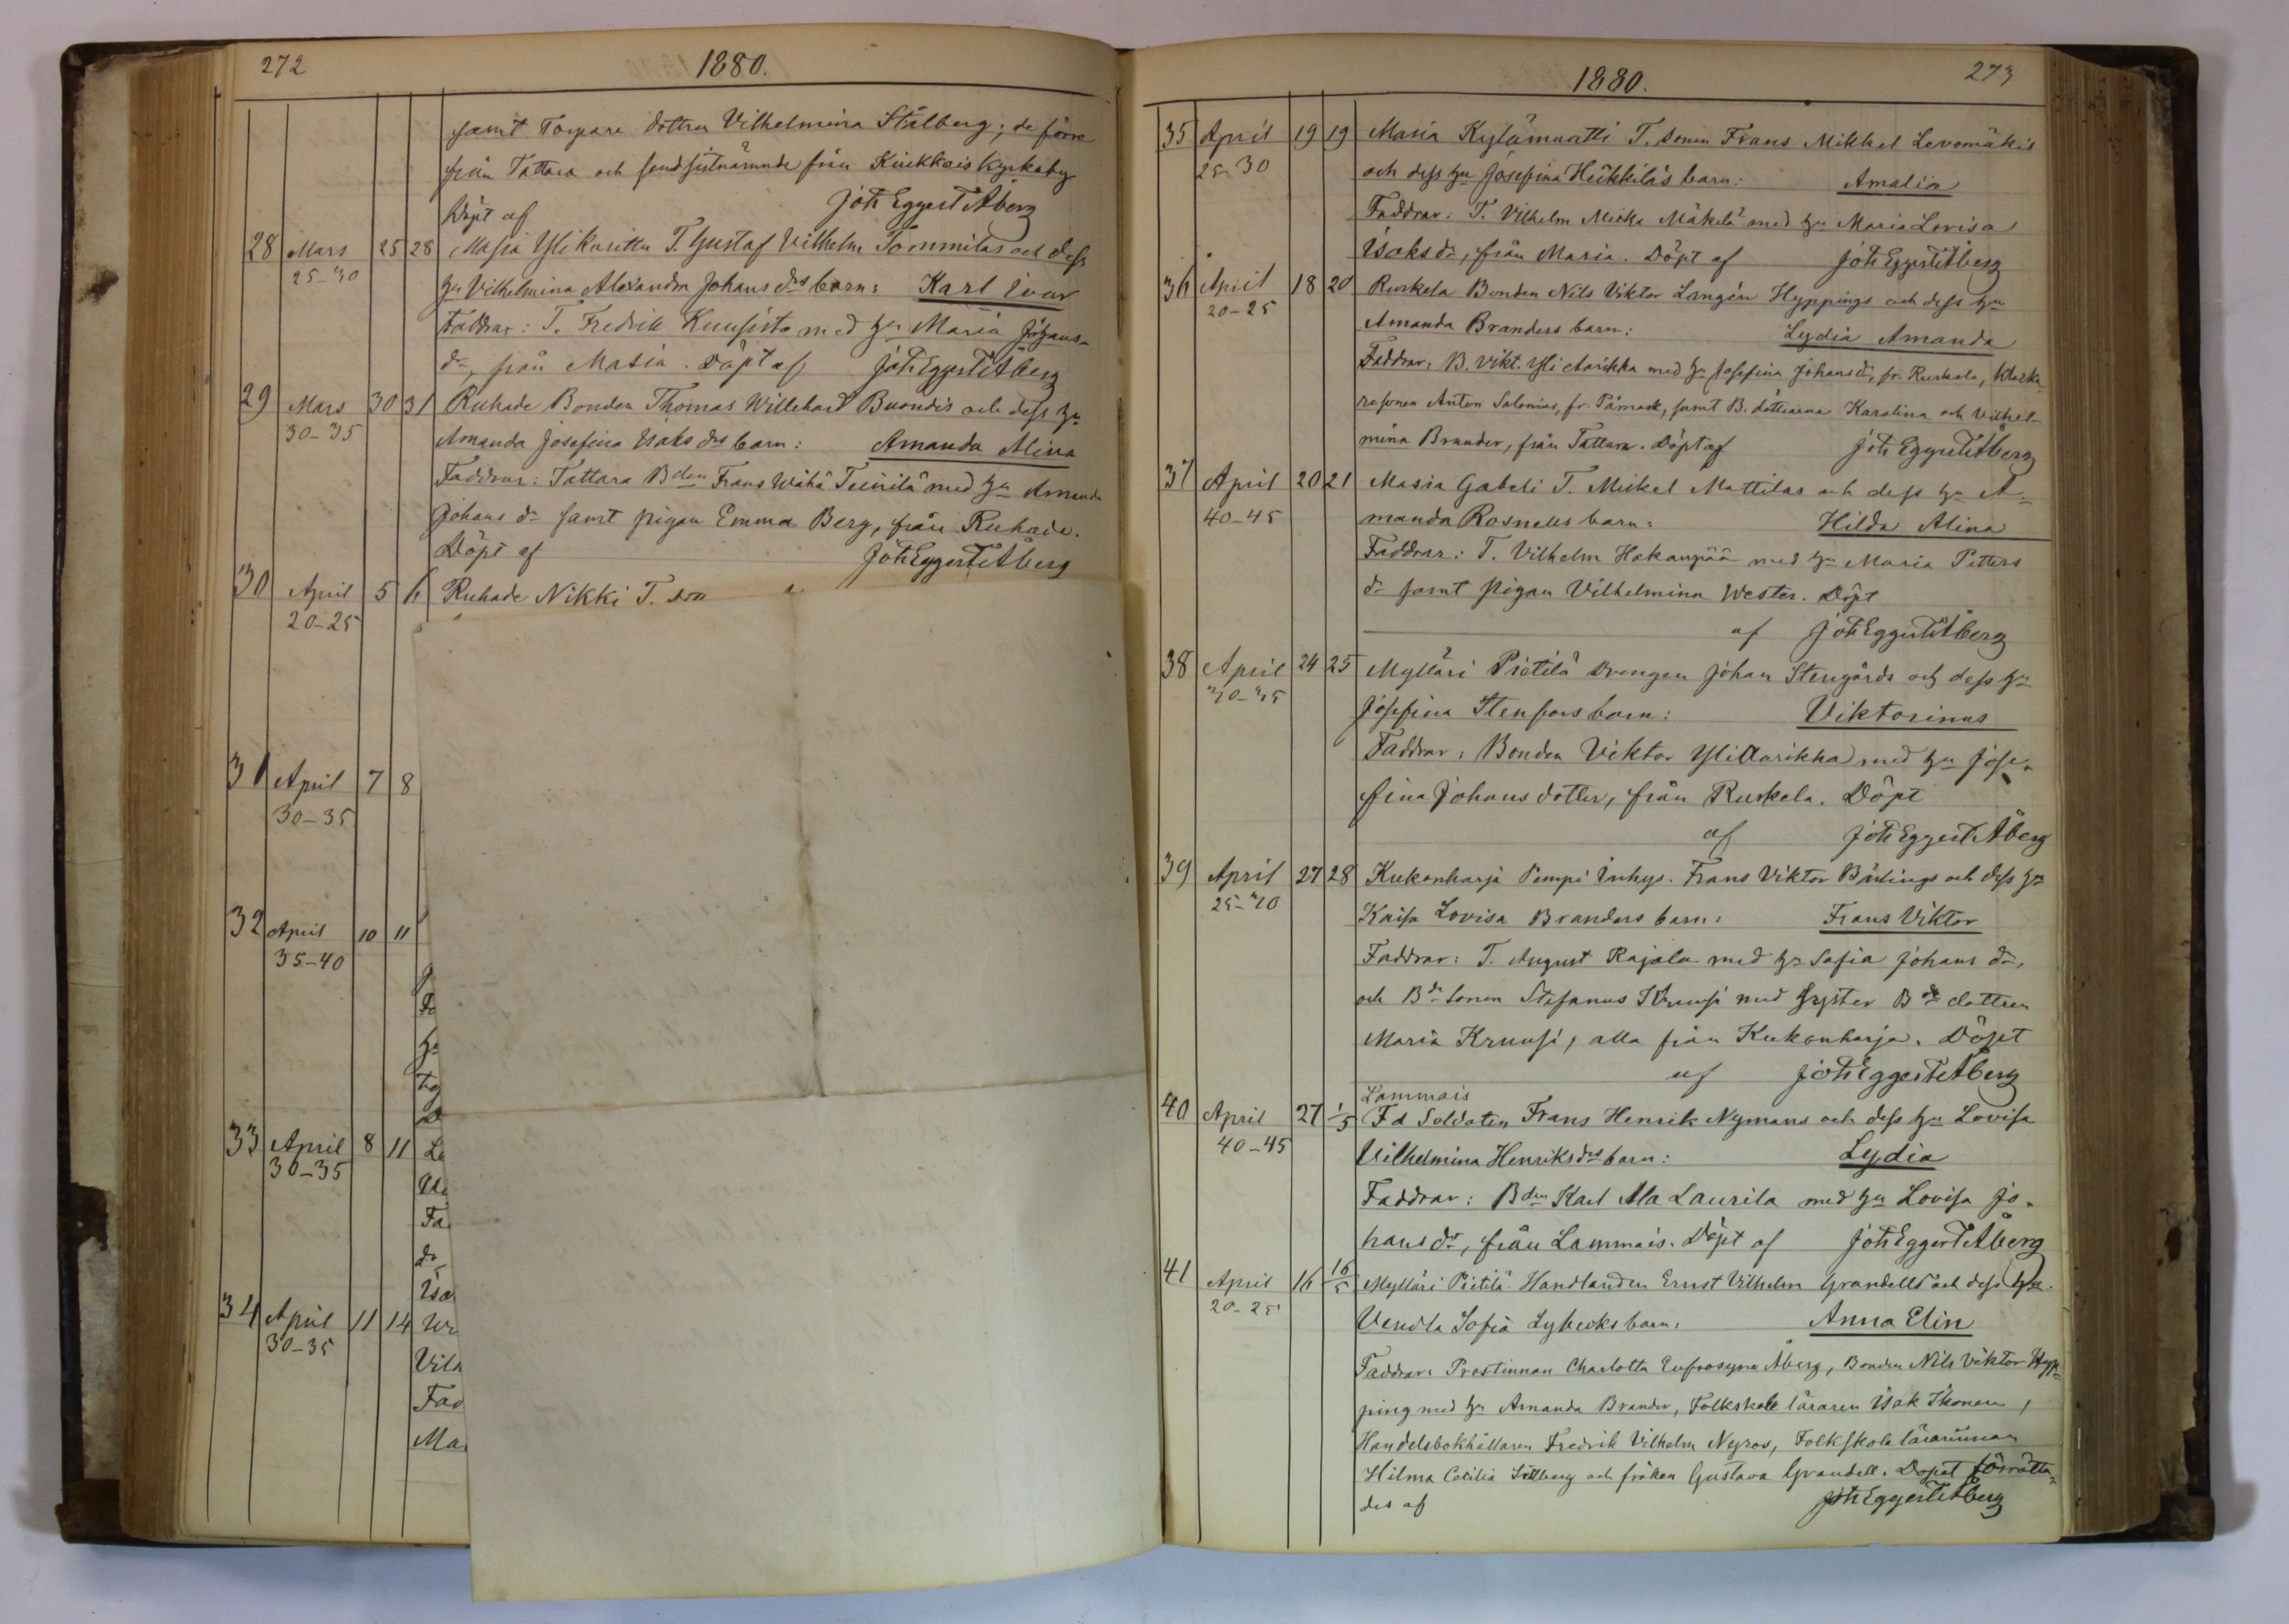 272
1880.
samt Torpare dottren Vilhelmina Stålberg; de förre
från Tattara och sistnämnde från Kiukkais Kyrkoby
Döpt af Joh Eggert Åberg
28 Mars 25 28 Masia Ylikaritta T. Gustaf Vilhelm Tommilas och dess
25-30 hu Vilhelmina Alexandra Johans drs barn: Karl Ivar
Faddrar: T. Fredrik Kuusisto med hu Maria Johans-
dr, från Masia. Döpt af Joh Eggert Åberg
29 Mars 30 31 Ruhade Bonden Thomas Willehard Buondis och dess hu
30-35 Amanda Josefina Isaks drs barn: Amanda Alina
Faddrar: Tattara Bden Frans Wähä Teinilä med hu Amanda
Johans dr samt pigan Emma Berg, från Ruhade.
Döpt af Joh Eggert Åberg
30 April 5 6 Ruhade Nikki T. son
20-25
31 April 7 8
30-35
32 April 10 11
35-40
33 April 8 11
30-35
Fa
dr
34 April 11 14
30-35
Vilh
Fad
Ma
1880.
273
35 April 19 19 Masia Kylämuatti T. sonen Frans Mikkel Levomäkis
25-30 och dess hu Josefina Heikkiläs barn: Amalia
Faddrar: T. Vilhelm Mickä Mäkelä med hu Maria Lovisa
Isaksdr, från Masia. Döpt af Joh Eggert Åberg
36 April 18 20 Ruskela Bonden Nils Viktor Langén Hyppings och dess hu
20-25 Amanda Branders barn: Lydia Amanda
Faddrar: B. Vikt. Yli Aarikka med hu Josefina Johansdr, fr. Ruskela, Klocka-
resonen Anton Salonius, fr. Pämark, samt B. döttrarna Karolina och Vilhel-
mina Brander, från Tattara. Döpt af Joh Eggert Åberg
37 April 20 21 Masia Gabeli T. Mickel Mattilas och dess hu A-
40-45 manda Rosnells barn: Hilda Alina
Faddrar: T. Vilhelm Hakanpää med hu Maria Petters
dr samt pigan Vilhelmina Wester. Döpt
af Joh Eggert Åberg
38 April 24 25 Mylläri Pietilä Drengen Johan Stengårds och dess hu
40-45 Josefina Stenfors barn: Viktorinus
Faddrar: Bonden Viktor Yli Aarikka med hu Jose-
fina Johans dotter, från Ruskela. Döpt
af Joh Eggert Åberg
39 April 27 28 Kukonharja Pempi Inhys. Frans Viktor Bärlings och dess hu
25-40 Kaisa Lovisa Branders barn: Frans Viktor
Faddrar: T. August Rajala med hu Sofia Johans dr,
och Bde sonen Stefanus Kruusi med syster Bde dottren
Maria Kruusi, alla från Kukonharja. Döpt
af Joh Eggert Åberg
Lammais
40 April 27 1/5 Fd Soldaten Frans Henrik Nymans och dess hu Lovisa
40-45 Vilhelmina Henriksdrs barn: Lydia
Faddrar: Bden Karl Ala Laurila med hu Lovisa Jo-
hans dr, från Lammais. Döpt af Joh Eggert Åberg
41 April 16 16/5 Mylläri Pietilä Handlanden Ernst Vilhelm Grandells och dess hu
20-25 Vendla Sofia Lybecks barn: Anna Elin
Faddrar: Prostinnan Charlotta Eufrosyne Åberg, Bonden Nils Viktor Hyp-
ping med hu Amanda Brander, Folkskole läraren Isak Ikonen,
Handelsbokhållaren Fredrik Vilhelm Nyros, Folkskola lärarinnan
Hilma Cecilia Sållberg och fröken Gustava Grandell. Dopet förrätta-
des af Joh Eggert Åberg